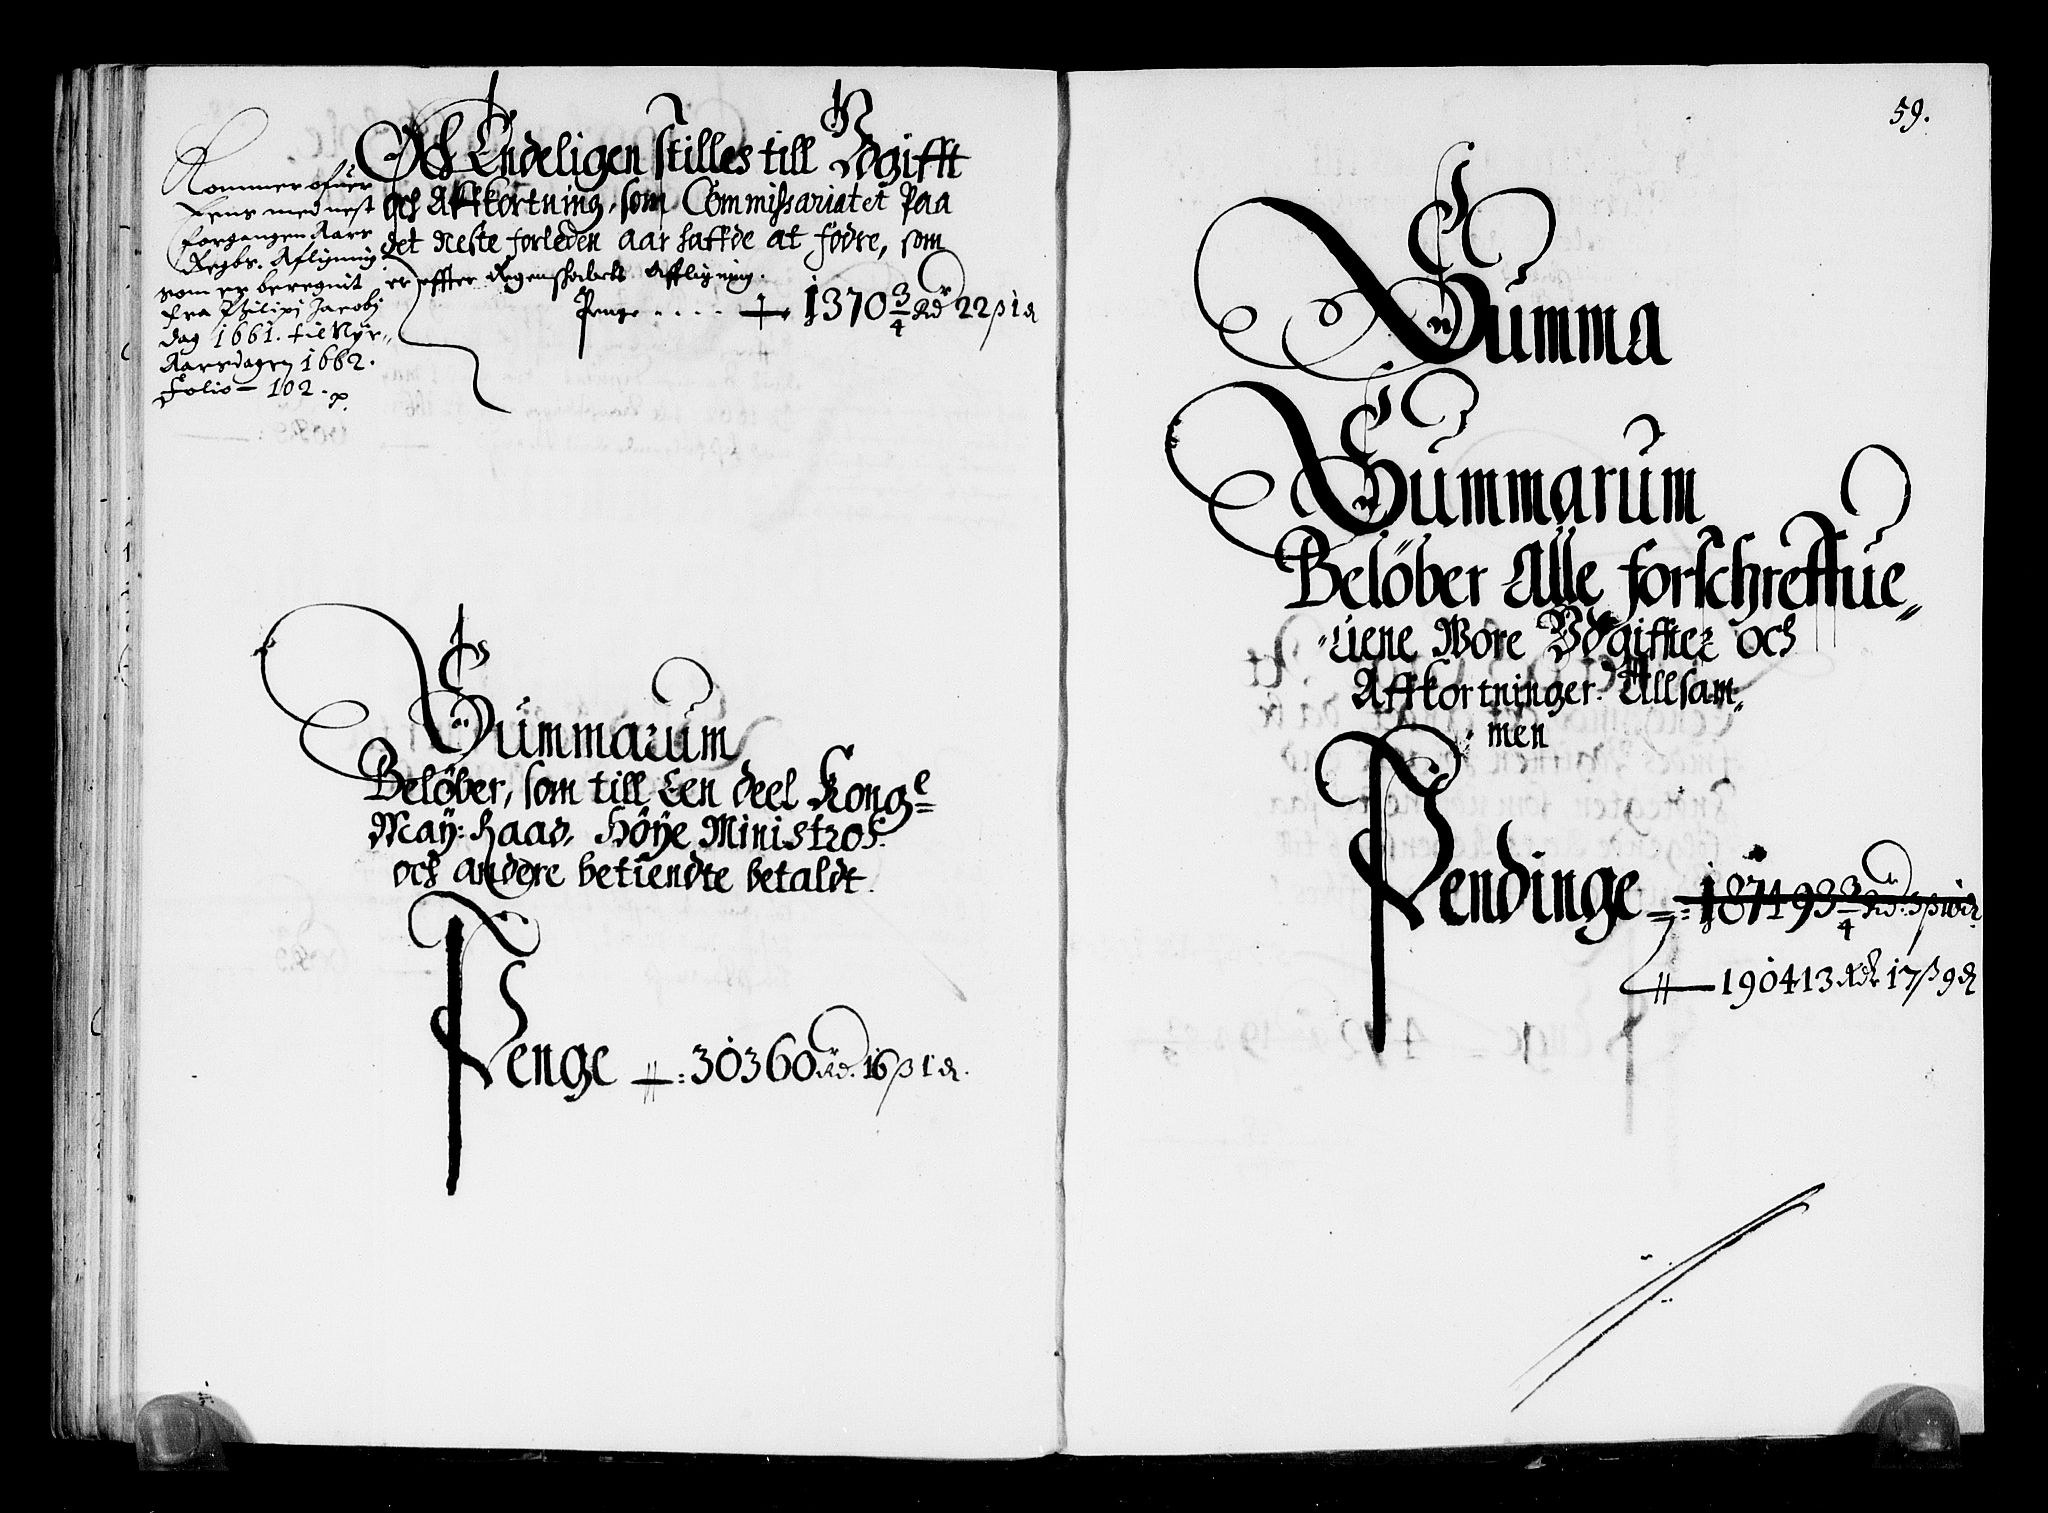 Kommer ofuer
Eens med nest
forgangen Aars
Regbs. Afligning
som er beregnit
fra Philipi Jacobj
dag 1661. til Nyr-
Aarsdagen 1662.
Folio - 102.
Och Endeligen stilles till Vdgifft
och Affkortning, som Commissariatet Paa
det Neste forleden aar haffde at fodre, som
er effter Regenskabets Affligning.
Penge .... 1370 3/4 Rdr 22 β 1 d
Summarum
Belöber, som till Een deel Kong.e
May: Raad, Höye Ministros.
och andre betiendte betaldt.
Penge 30360 Rd. 16 β 1 d.
59.
Summa
Summarum
Belöber Alle forschreffue-
uene Wore Vdgiffter och
Affkortninger. Allsam-
men
Pendinge 187493 3/4 Rd: 3 β
190413 Rdr 17 β 9 d